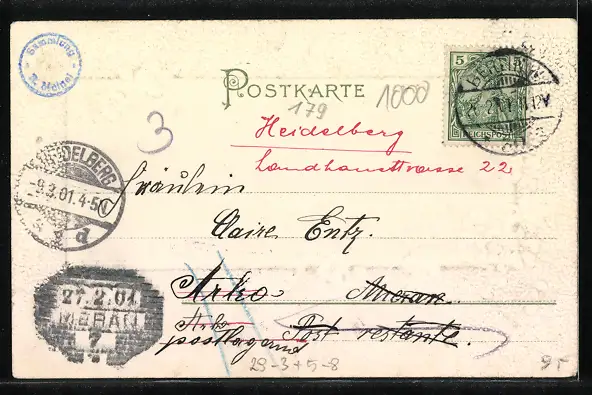 Sammlung
POSTKARTE
5
REICHSPOST
179
1000
3
Heidelberg
Landhausstrasse 22
HEIDELBERG
9.3.01.4-5
d
Fräulein
Claire Entz.
Arko Meran
Arko Post restante.
postlagernd
27.2.01
MERAN
7
29-3+5-8